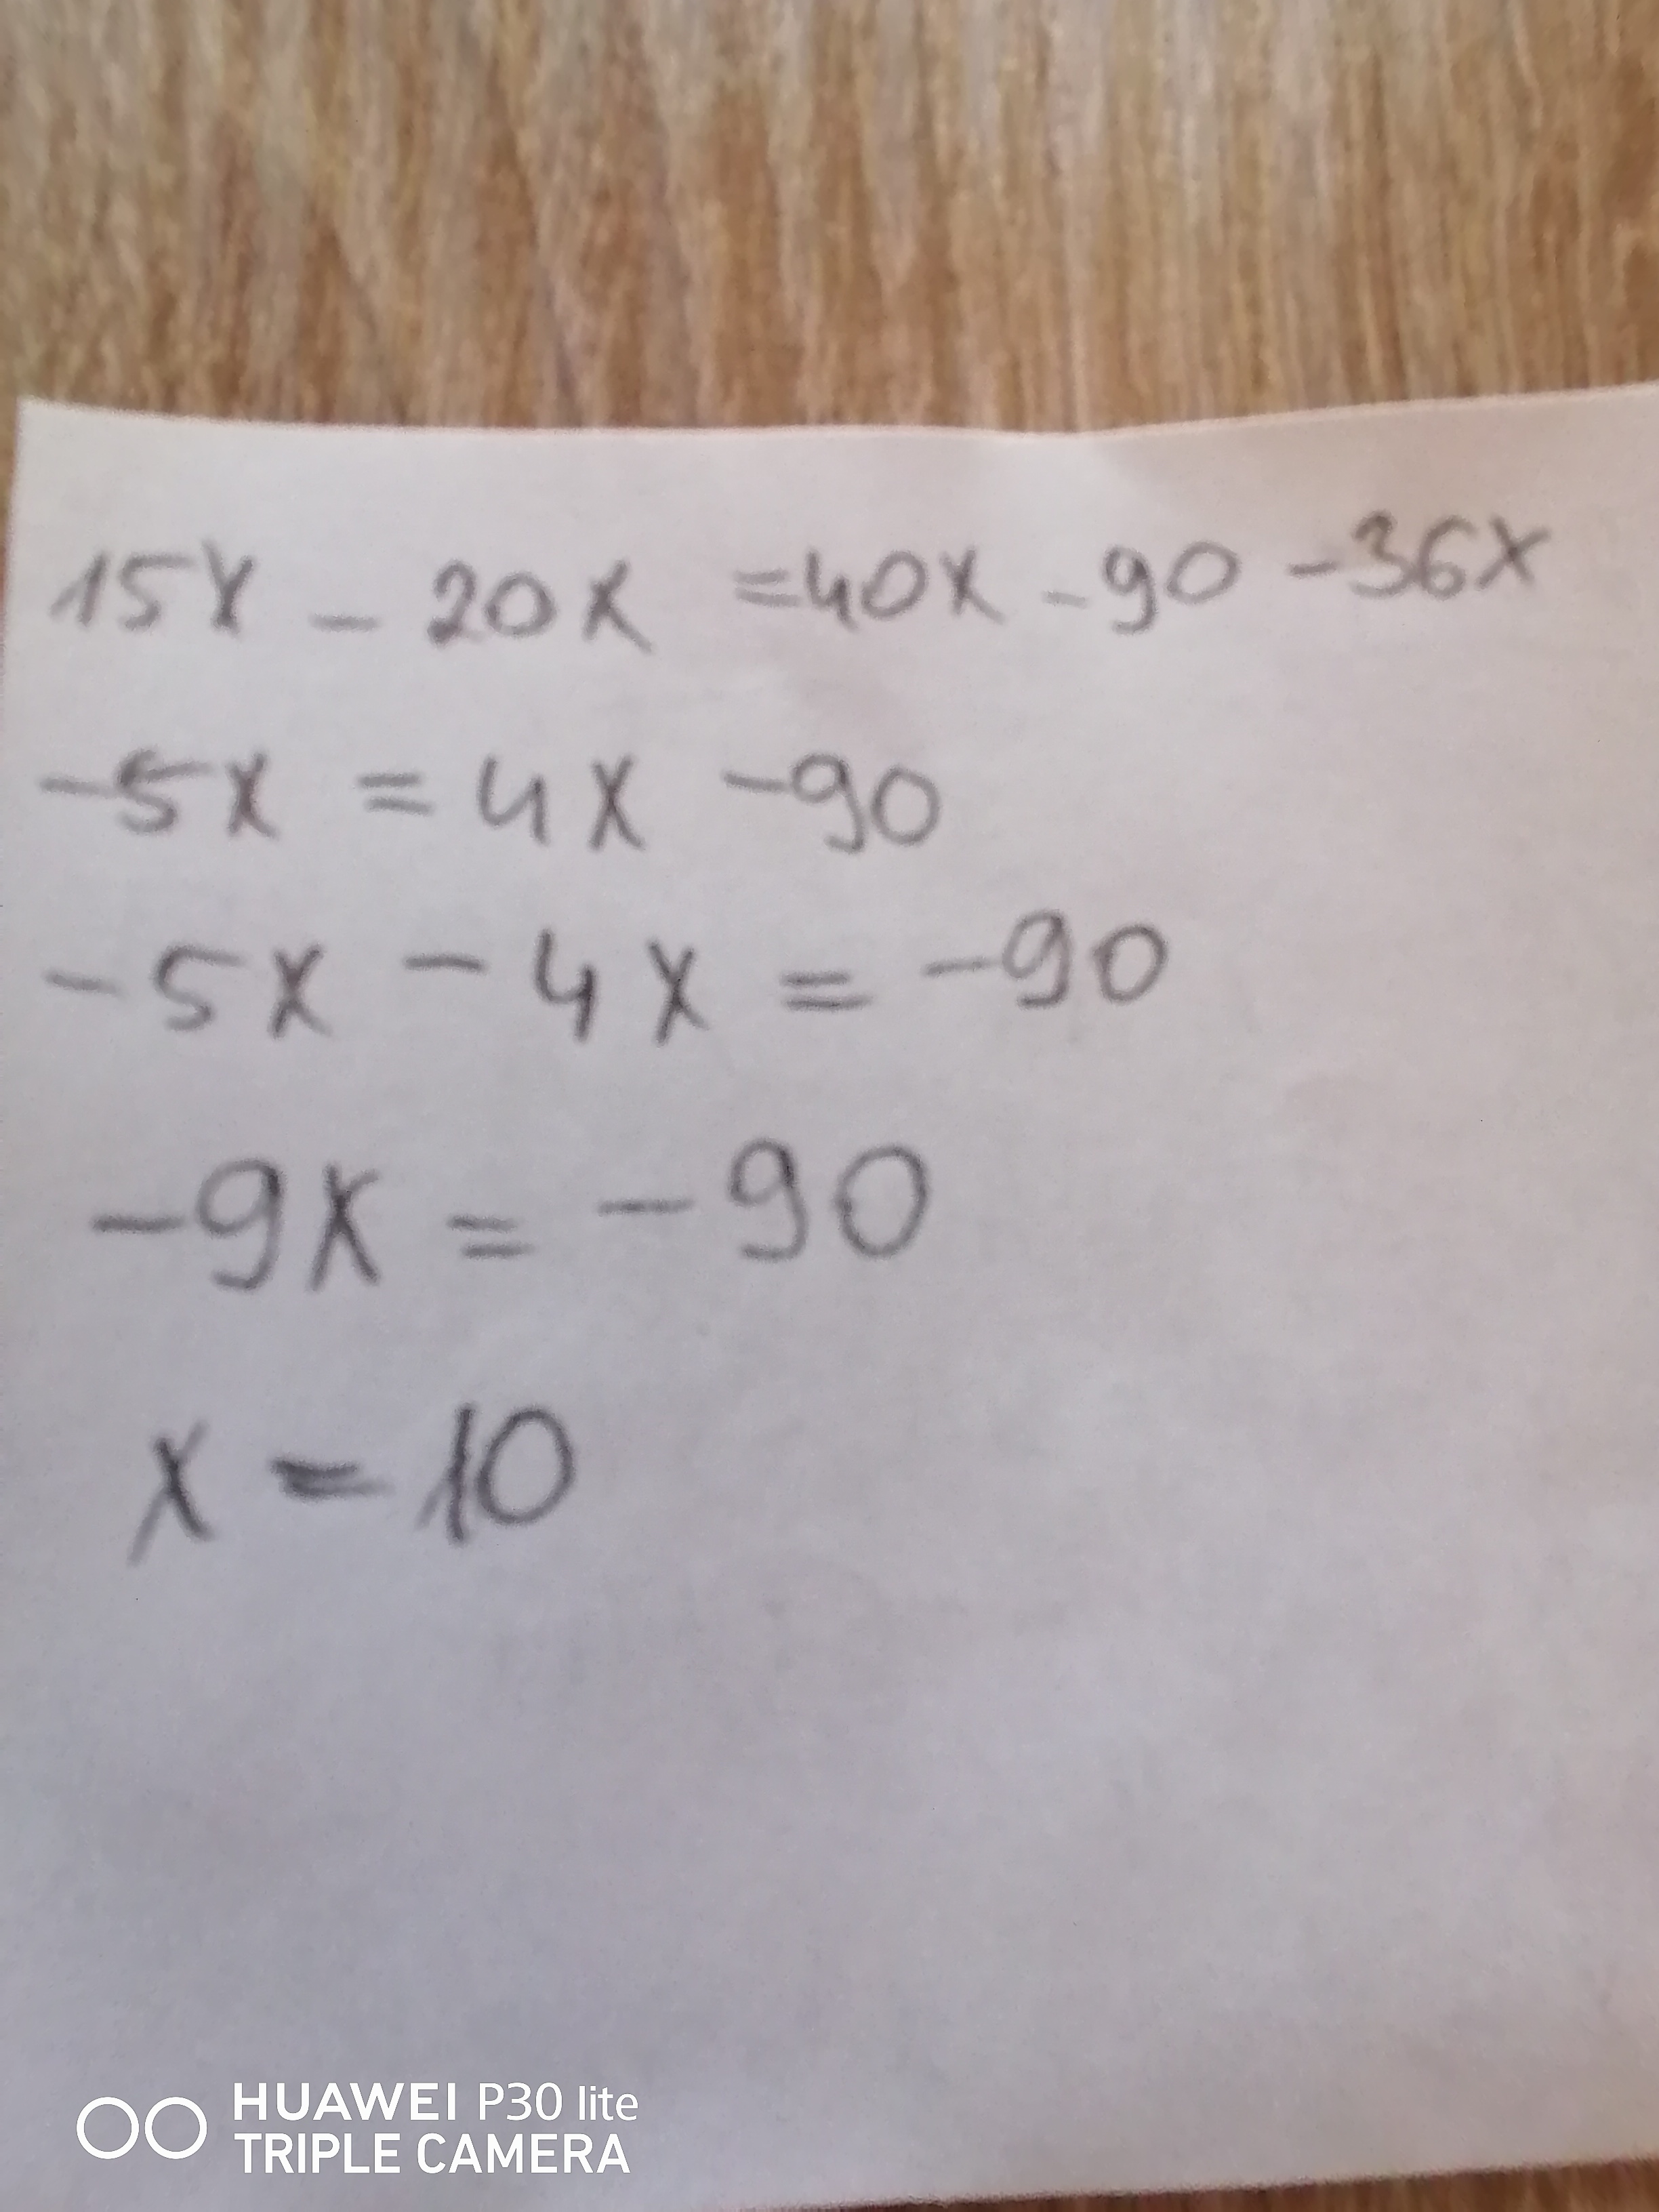 15x - 20x = 40x - 90 - 36x
-5x = 4x - 90
-5x - 4x = -90
-9x = -90
x = 10
HUAWEI P30 lite
TRIPLE CAMERA